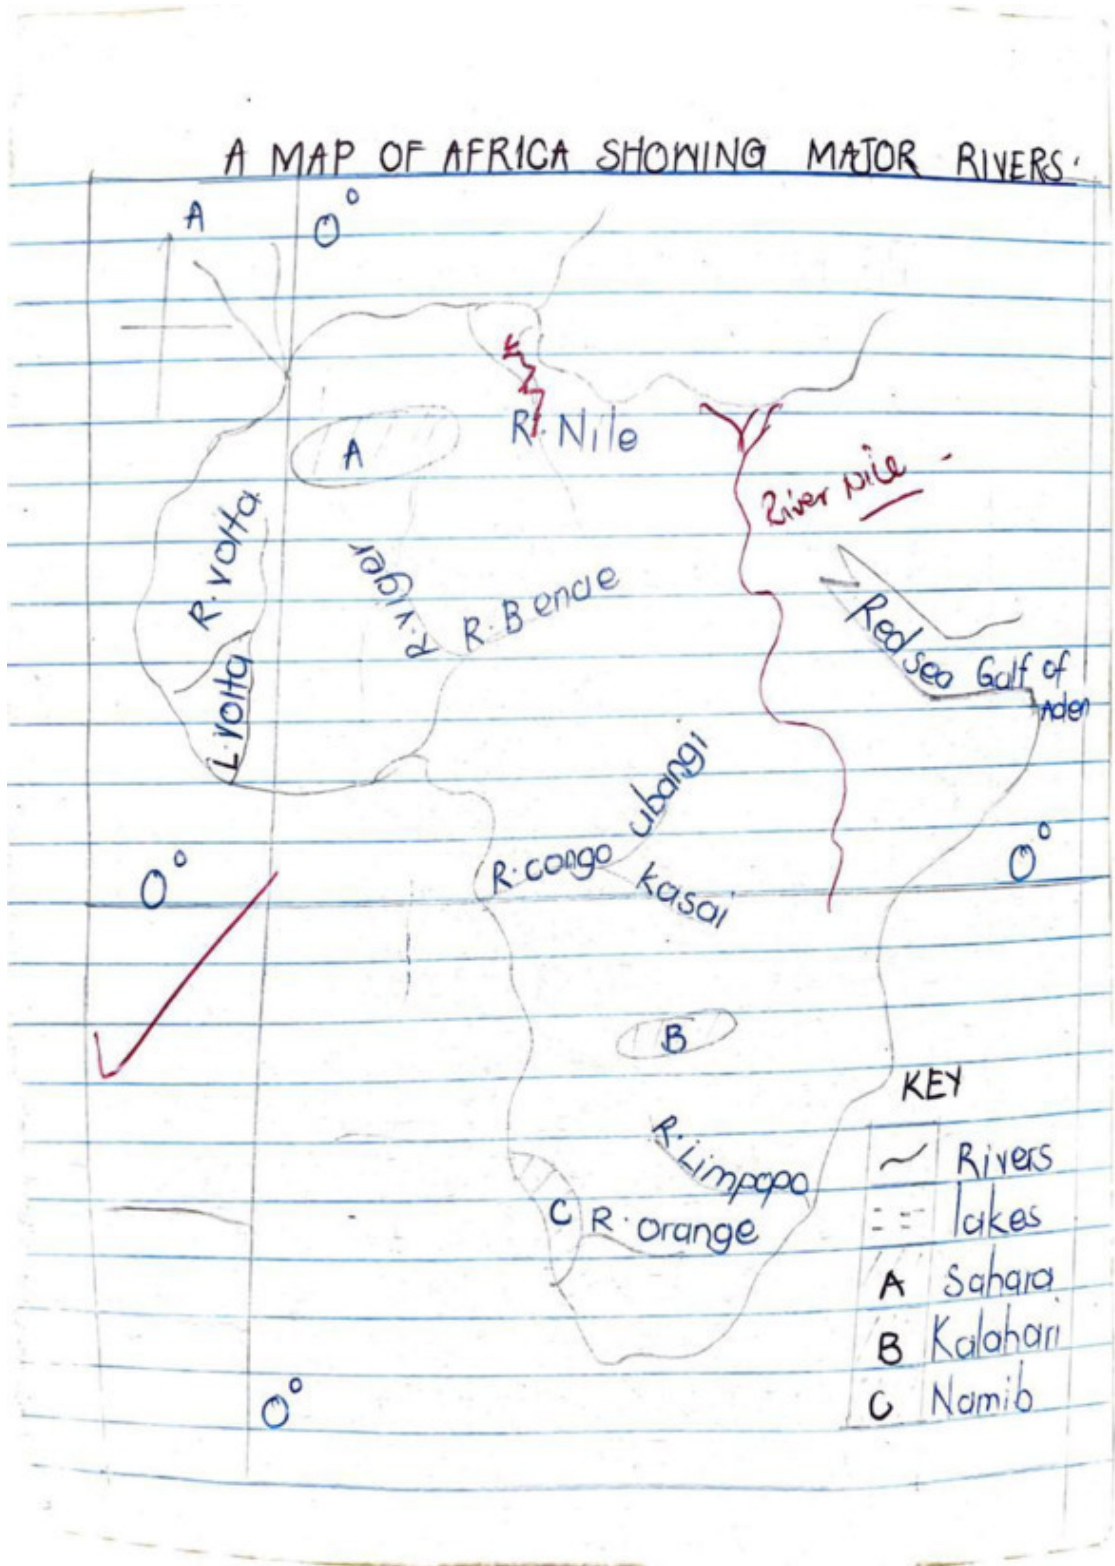 A MAP OF AFRICA SHOWING MAJOR RIVERS.
A
0°
A
R. Nile
River Nile
R. Volta
R. viger
R. Benue
Red sea
Gulf of
Aden
L. Volta
ubangi
R. congo
kasai
0°
0°
B
KEY
R. Limpopo
C
R. orange
Rivers
lakes
A Sahara
B Kalahari
C Namib
0°